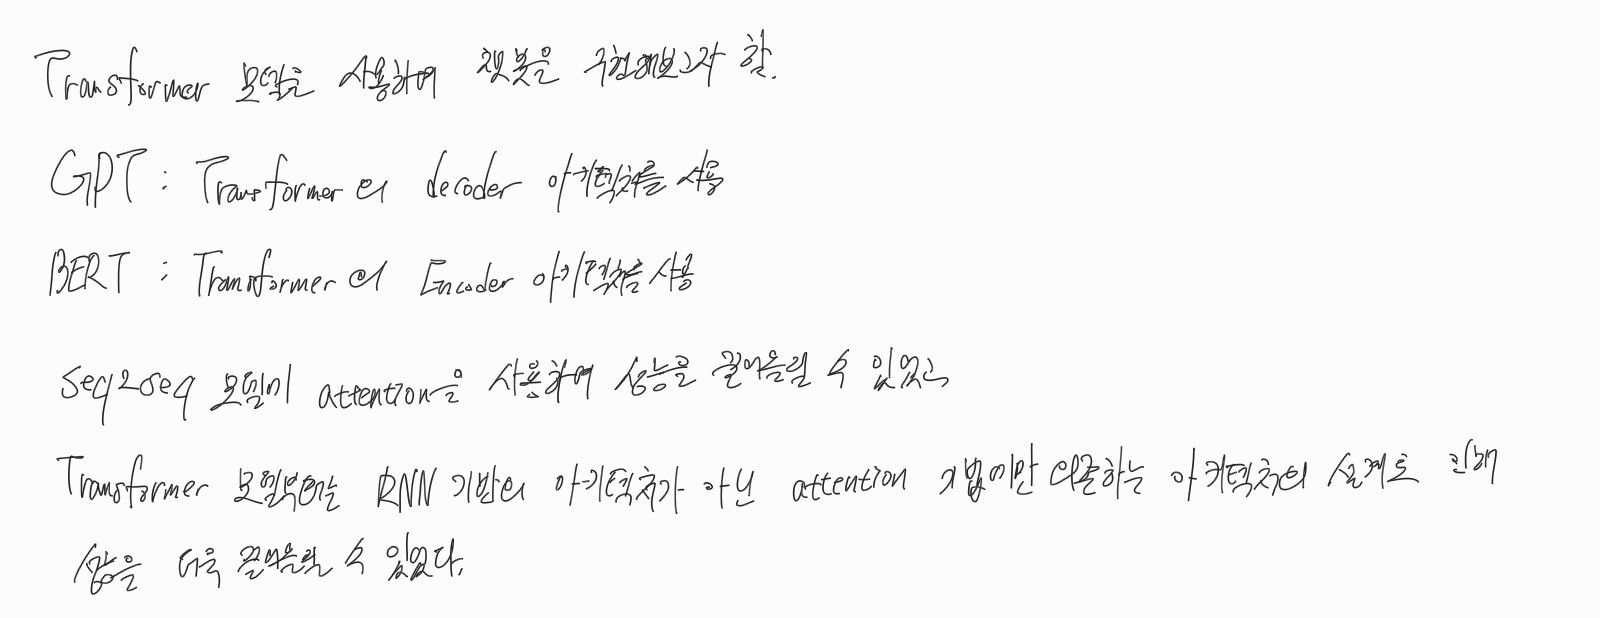 Transformer 모델을 사용하여 챗봇을 구현해보고자 함.
GPT : Transformer의 decoder 아키텍처를 사용
BERT : Transformer의 Encoder 아키텍처를 사용
seq2seq 모델이 attention을 사용하여 성능을 끌어올릴 수 있었고
Transformer 모델부터는 RNN 기반의 아키텍처가 아닌 attention 기법에만 의존하는 아키텍처의 설계로 인해
성능을 더욱 끌어올릴 수 있었다.